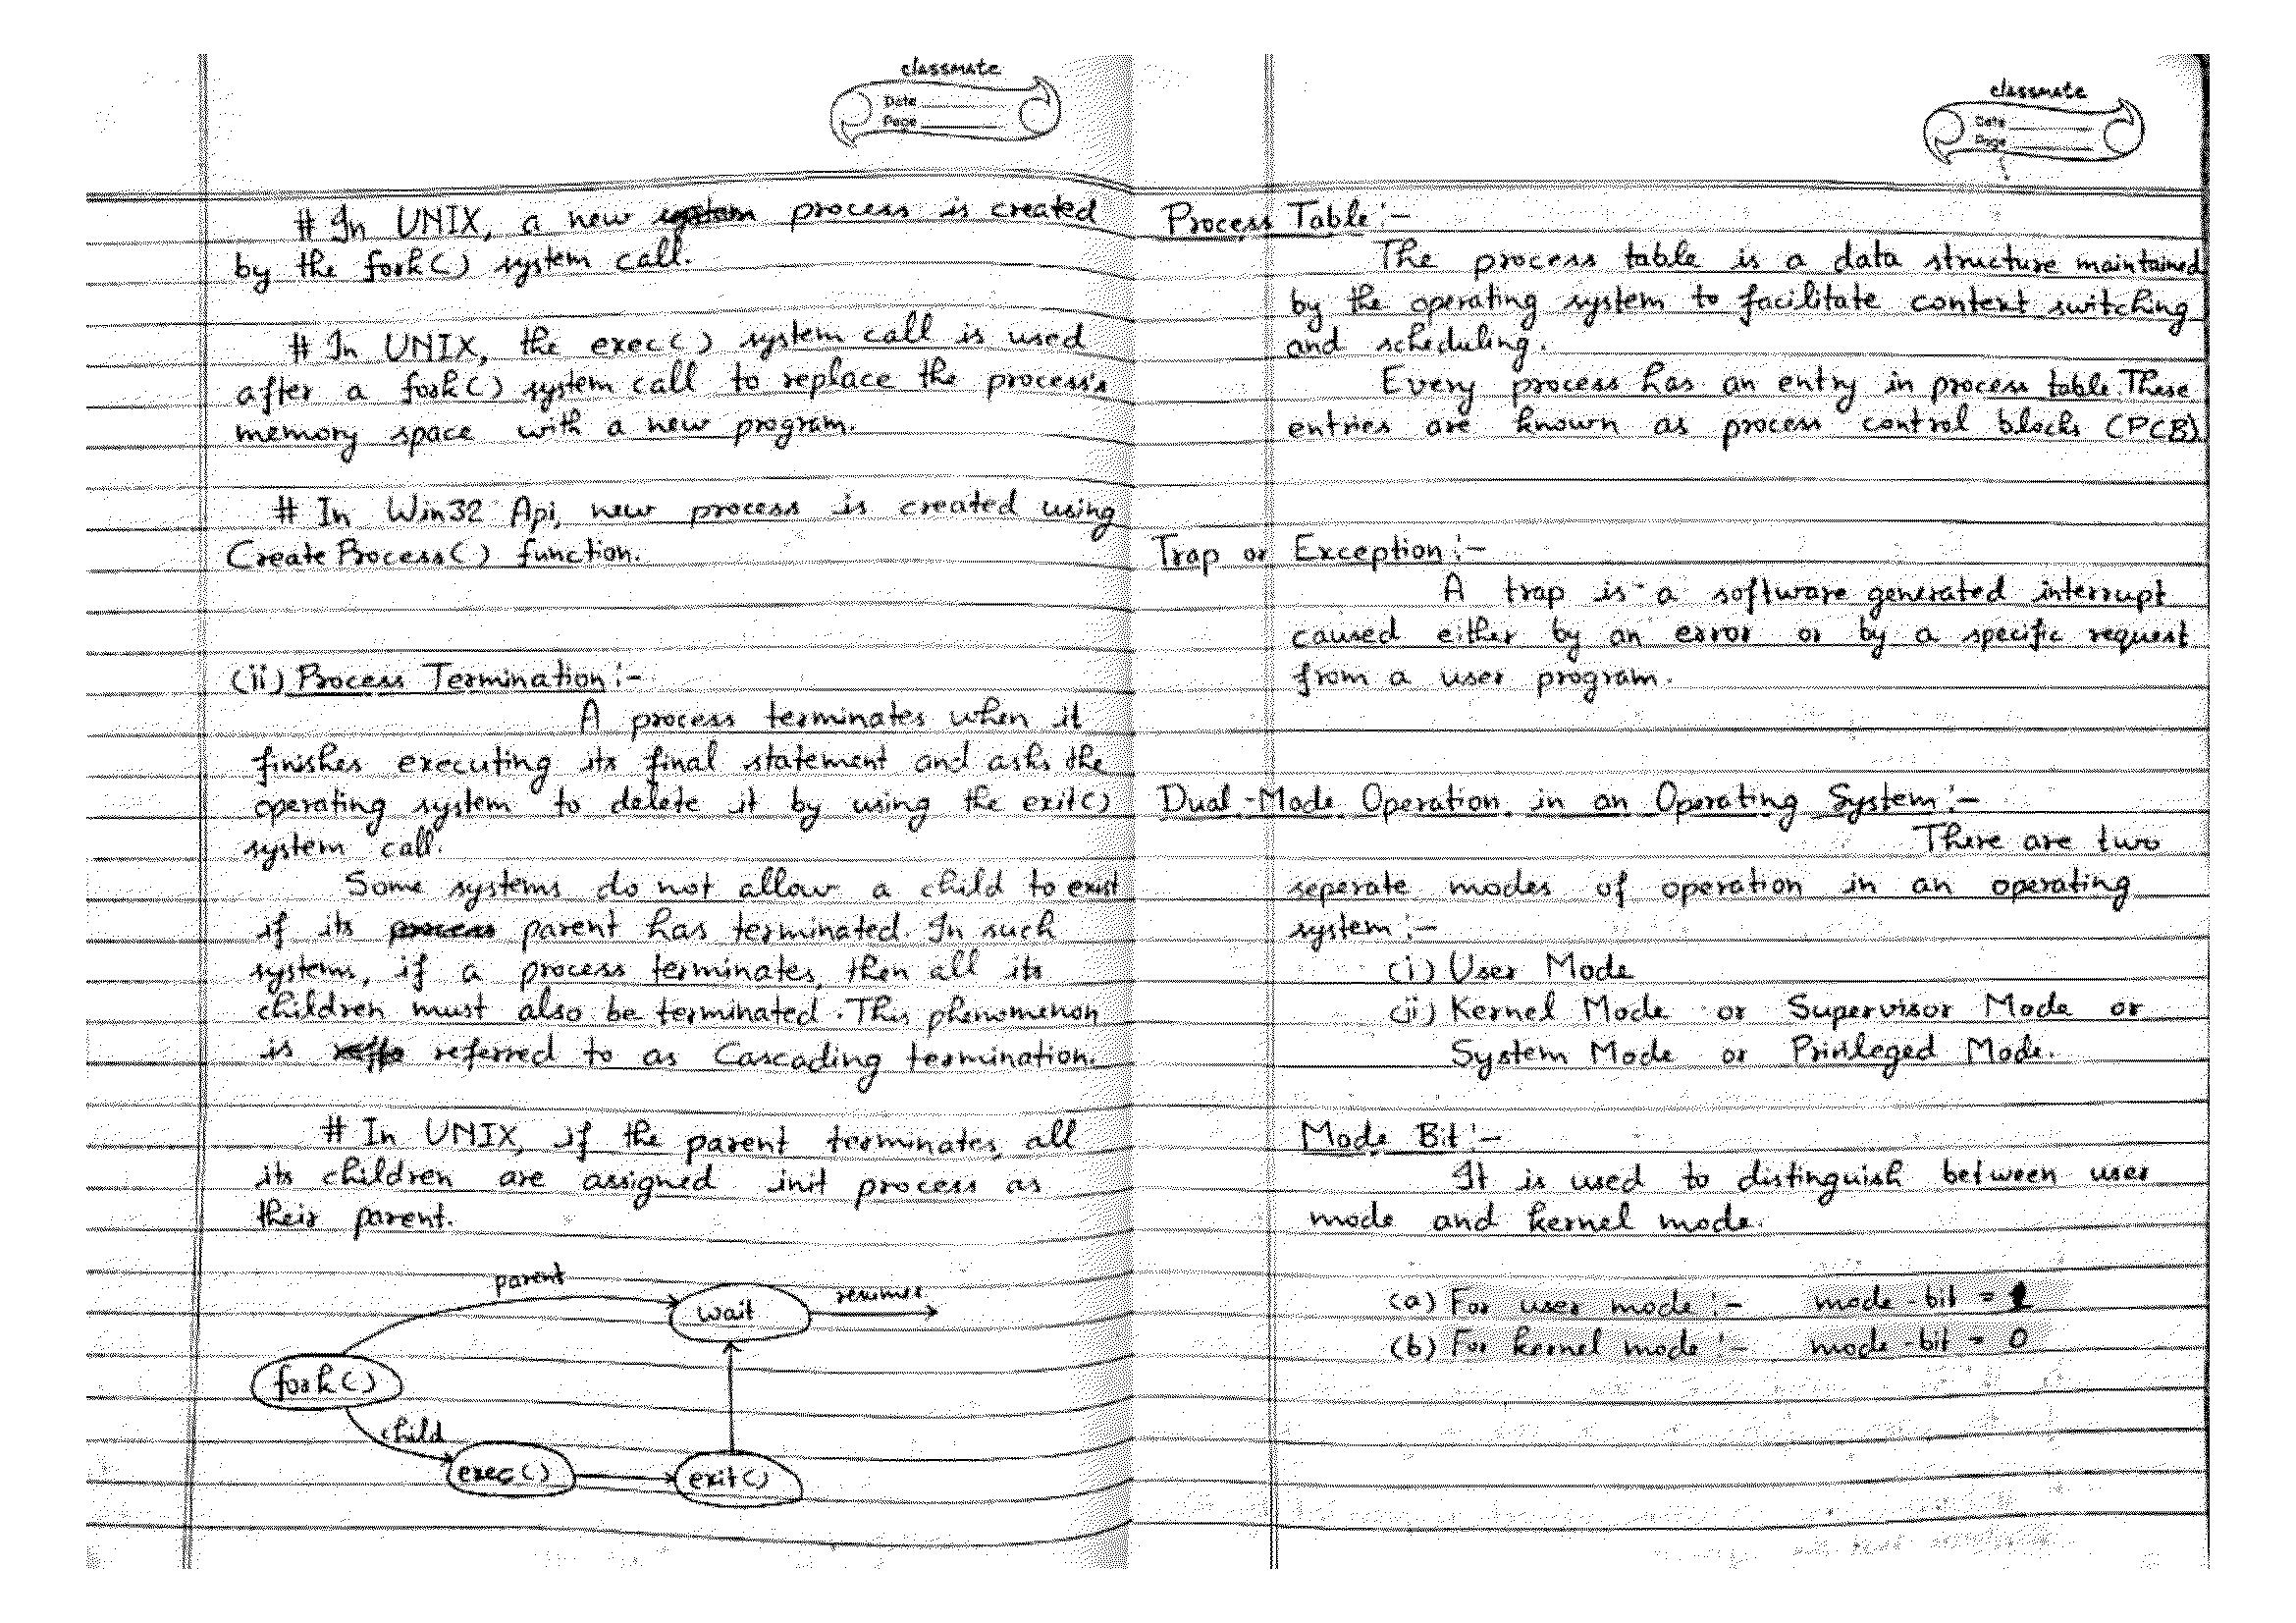 classmate
Date
Page
# In UNIX, a new process is created
by the fork() system call.
# In UNIX, the exec() system call is used
after a fork() system call to replace the process's
memory space with a new program.
# In Win32 Api, new process is created using
CreateProcess() function.
(ii) Process Termination :-
A process terminates when it
finishes executing its final statement and asks the
operating system to delete it by using the exit()
system call.
Some systems do not allow a child to exist
if its parent has terminated. In such
systems, if a process terminates, then all its
children must also be terminated. This phenomenon
is referred to as Cascading termination.
# In UNIX, if the parent terminates, all
its children are assigned init process as
their parent.
parent
wait
resumes
fork()
child
exec()
exit()
classmate
Date
Page
Process Table :-
The process table is a data structure maintained
by the operating system to facilitate context switching
and scheduling.
Every process has an entry in process table. These
entries are known as process control blocks (PCB)
Trap or Exception :-
A trap is a software generated interrupt
caused either by an error or by a specific request
from a user program.
Dual-Mode Operation in an Operating System :-
There are two
seperate modes of operation in an operating
system :-
(i) User Mode
(ii) Kernel Mode or Supervisor Mode or
System Mode or Privileged Mode.
Mode Bit :-
It is used to distinguish between user
mode and kernel mode.
(a) For user mode :- mode-bit = 1
(b) For kernel mode :- mode-bit = 0